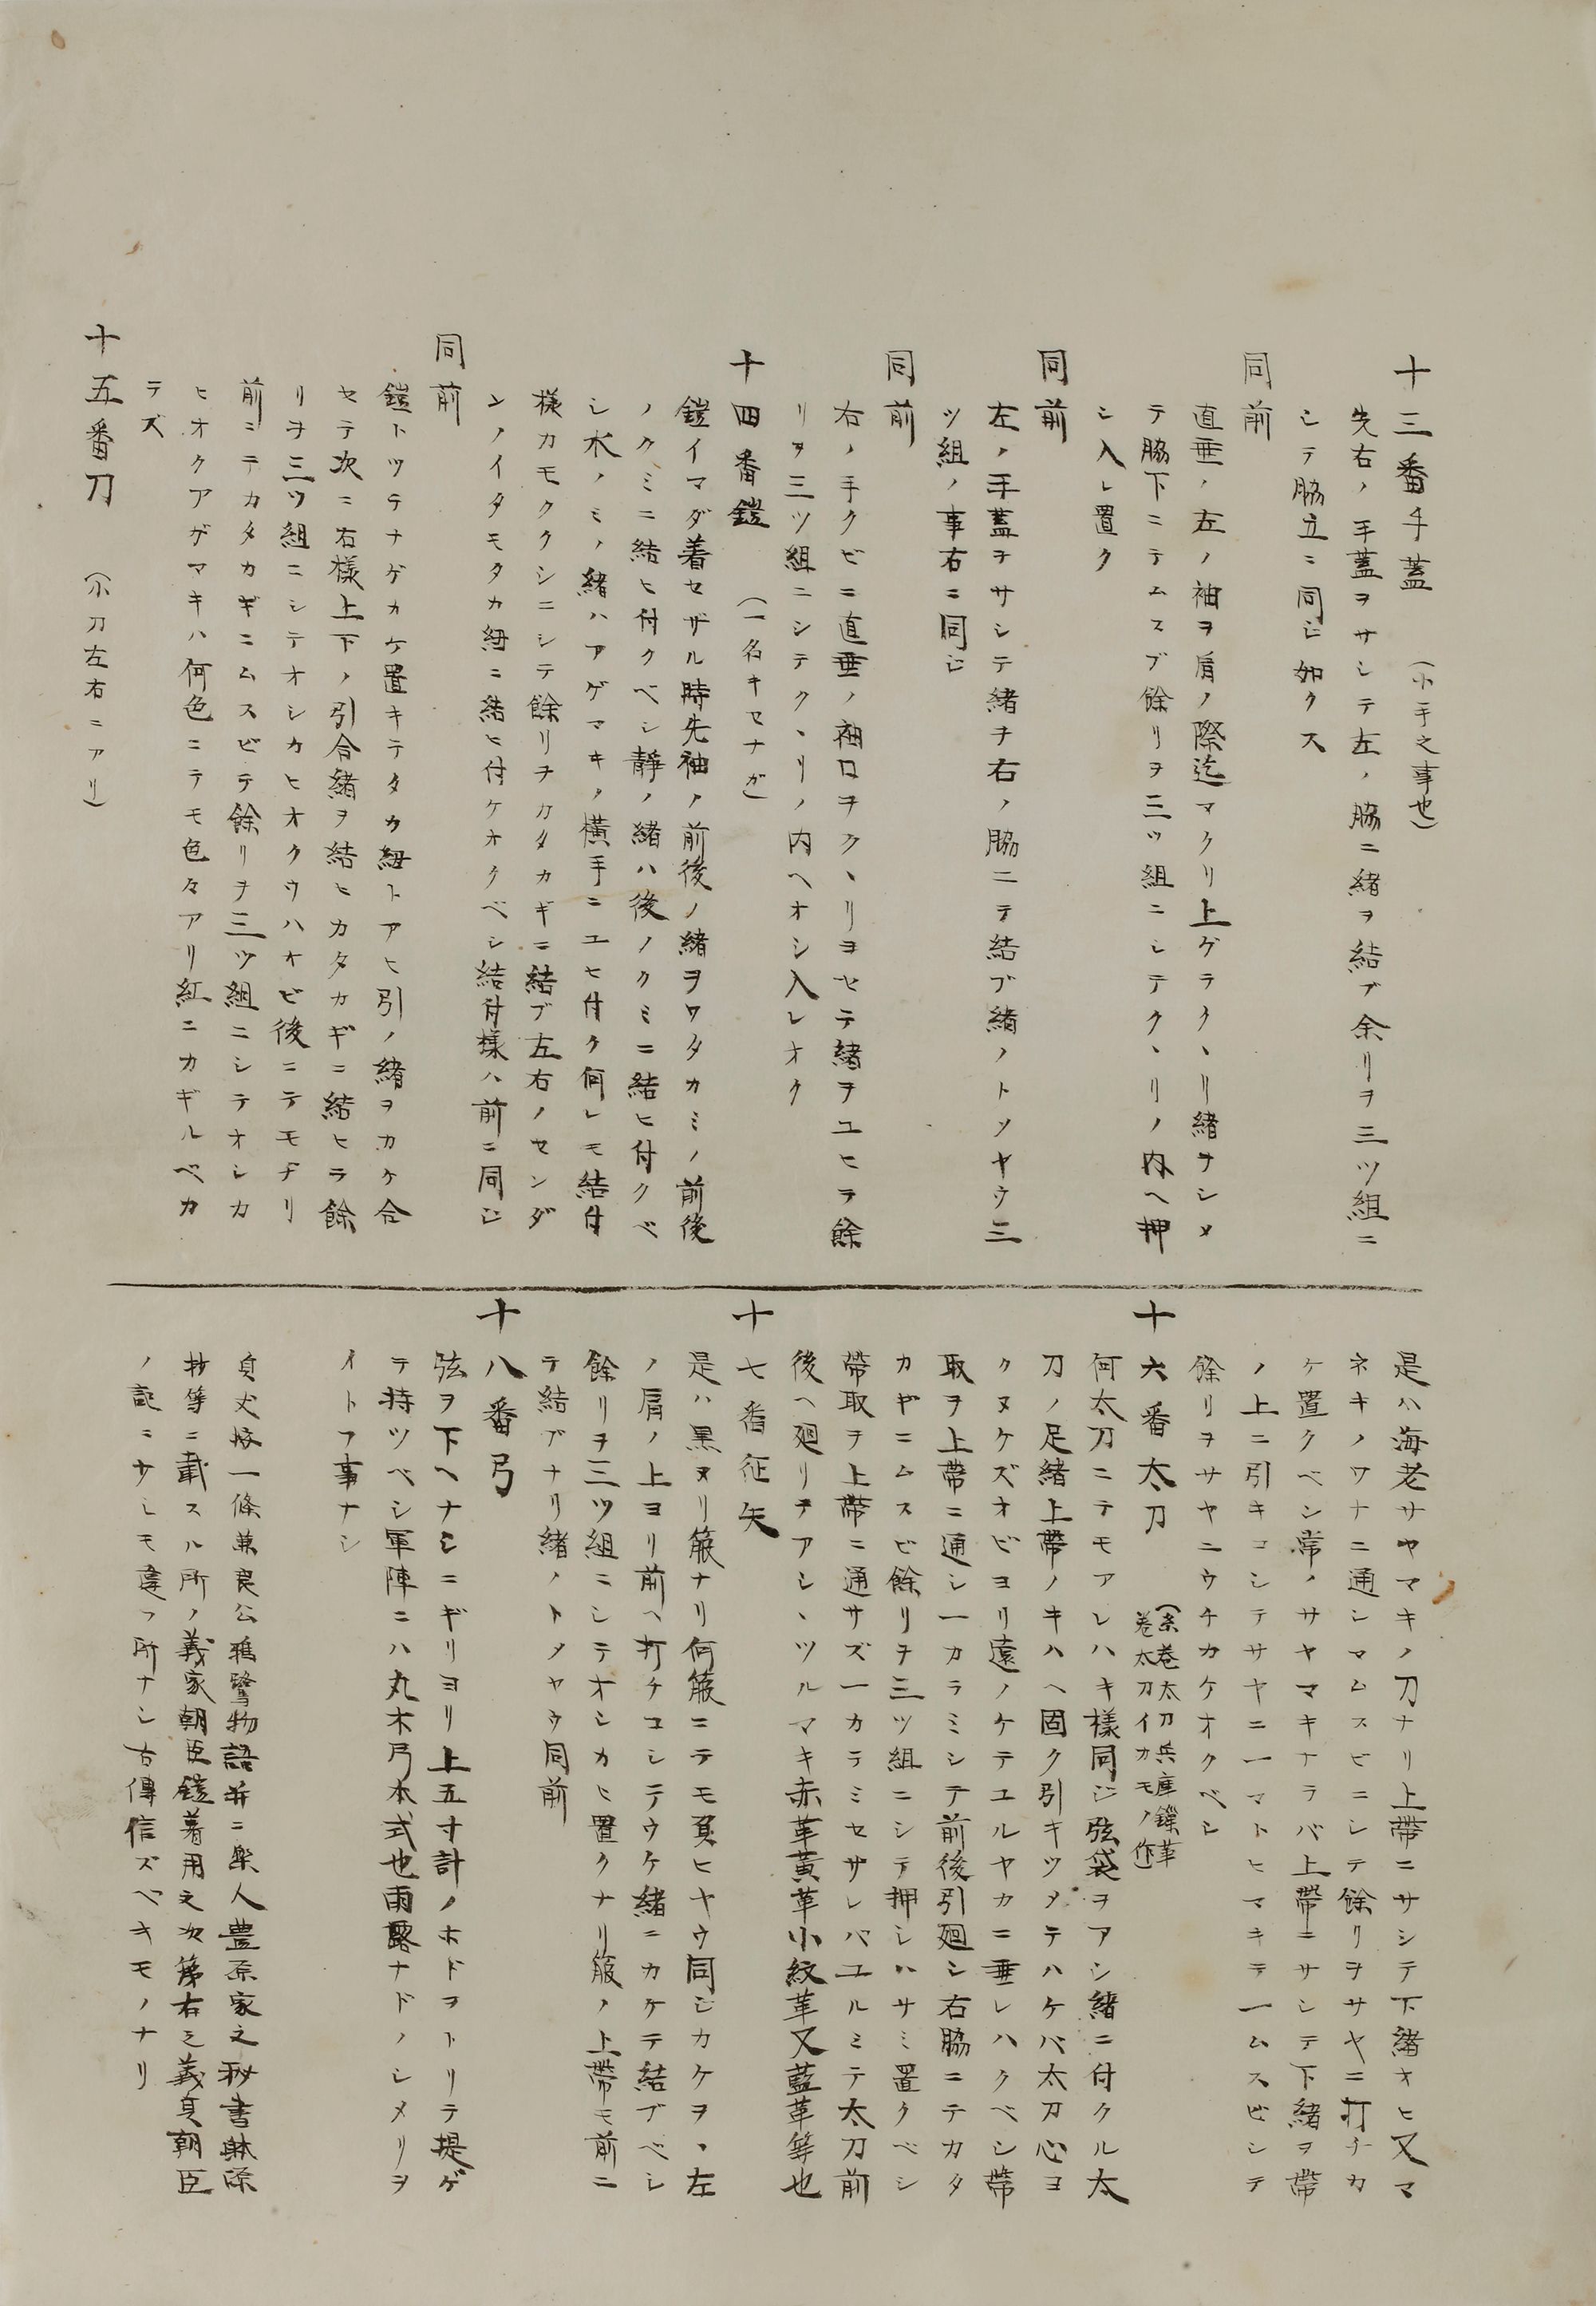 十三番手蓋　(小手之事也)
先右ノ手蓋ヲサシテ左ノ脇ニ緒ヲ結ブ余リヲ三ツ組ニ
シテ脇立ニ同ジ如クス
同前
直垂ノ左ノ袖ヲ肩ノ際迄マクリ上ゲテクヽリ緒ヲシメ
テ脇下ニテムスブ餘リヲ三ツ組ニシテクヽリノ内ヘ押
シ入レ置ク
同前
左ノ手蓋ヲサシテ緒ヲ右ノ脇ニテ結ブ緒ノトツヤウ三
ツ組ノ事右ニ同ジ
同前
右ノ手クビニ直垂ノ袖口ヲクヽリヨセテ緒ヲユヒテ餘
リヲ三ツ組ニシテクヽリノ内ヘオシ入レオク
十四番鎧　(一名キセナガ)
鎧イマダ着セザル時先袖ノ前後ノ緒ヲワタカミノ前後
ノクミニ結ヒ付クベシ静ノ緒ハ後ノクミニ結ヒ付クベ
シ水ノミノ緒ハアゲマキノ横手ニユヒ付ク何レモ結付
様カモククシニシテ餘リヲカタカギニ結ブ左右ノセンダ
ンノイタモタカ紐ニ結ヒ付ケオクベシ結付様ハ前ニ同ジ
同前
鎧トツテナゲカケ置キテタカ紐トアヒ引ノ緒ヲカケ合
セテ次ニ右様上下ノ引合緒ヲ結ヒカタカギニ結ヒテ餘
リヲ三ツ組ニシテオシカヒオクウハオビ後ニテモヂリ
前ニテカタカギニムスビテ餘リヲ三ツ組ニシテオシカ
ヒオクアガマキハ何色ニテモ色々アリ紅ニカギルベカ
ラズ
十五番刀　(小刀左右ニアリ)
是ハ海老サヤマキノ刀ナリ上帯ニサシテ下緒オヒ又マ
ネキノワナニ通シマムスビニシテ餘リヲサヤニ打チカ
ケ置クベシ常ノサヤマキナラバ上帯ニサシテ下緒ヲ帯
ノ上ニ引キコシテサヤニ一マトヒマキテ一ムスビシテ
餘リヲサヤニウチカケオクベシ
十六番太刀　(糸巻太刀兵庫鎖革
巻太刀イカモノ作)
何太刀ニテモアレハキ様同ジ弦袋ヲアシ緒ニ付クル太
刀ノ足緒上帯ノキハヘ固ク引キツメテハケバ太刀心ヨ
クヌケズオビヨリ遠ノケテユルヤカニ垂レハクベシ帯
取ヲ上帯ニ通シ一カラミシテ前後引廻シ右脇ニテカタ
カギニムスビ餘リヲ三ツ組ニシテ押シハサミ置クベシ
帯取ヲ上帯ニ通サズ一カラミセザレバユルミテ太刀前
後ヘ廻リテアシヽツルマキ赤革黄革小紋革又藍革等也
十七番征矢
是ハ黒ヌリ箙ナリ何箙ニテモ負ヒヤウ同ジカケヲヽ左
ノ肩ノ上ヨリ前ヘ打チコシテウケ緒ニカケテ結ブベシ
餘リヲ三ツ組ニシテオシカヒ置クナリ箙ノ上帯モ前ニ
テ結ブナリ緒ノトメヤウ同前
十八番弓
弦ヲ下ヘナシニギリヨリ上五寸計ノホドヲトリテ提ゲ
テ持ツベシ軍陣ニハ丸木弓本式也雨露ナドノシメリヲ
イトフ事ナシ
貞丈按一條兼良公鴉鷺物語并ニ楽人豊原家之秘書躰源
抄等ニ載スル所ノ義家朝臣鎧着用之次第右之義貞朝臣
ノ記ニ少シモ違フ所ナシ古傳信ズベキモノナリ